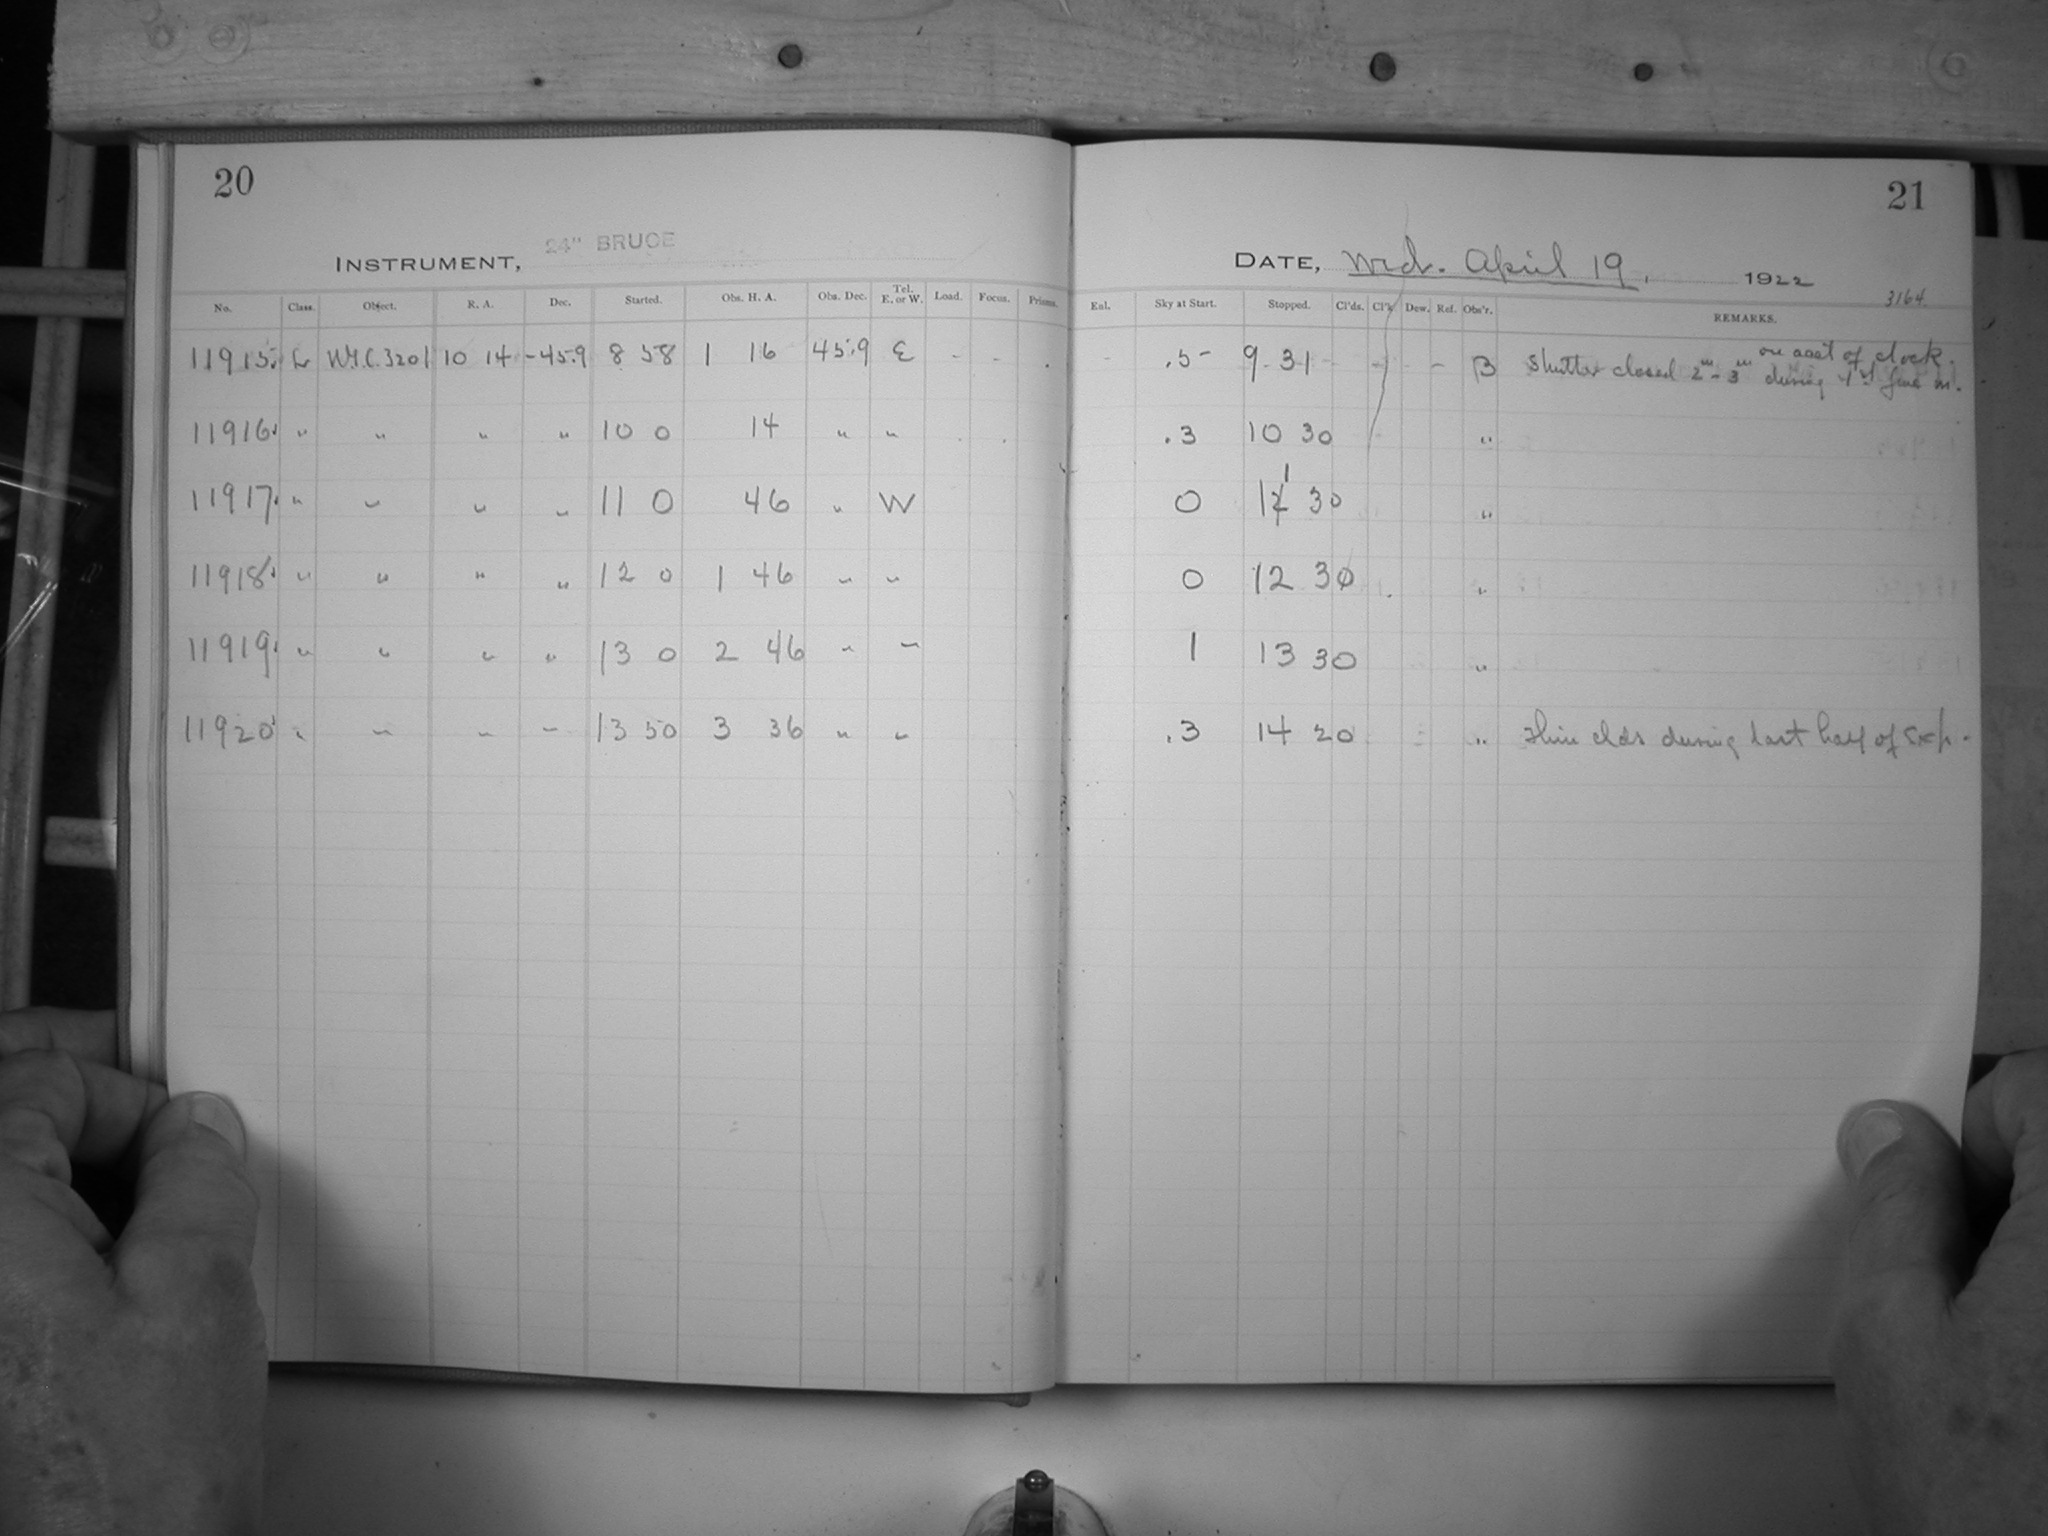 20
INSTRUMENT, 24" BRUCE
No. Class. Object. R. A. Dec. Started. Obs. H. A. Obs. Dec. Tel. E. or W. Load. Focus. Prisms.
11915 L N.G.C. 3201 10 14 -45.9 8 58 1 16 45.9 E - - .
11916 " " " " 10 0 14 " "
11917 " " " " 11 0 46 " W
11918 " " " " 12 0 1 46 " "
11919 " " " " 13 0 2 46 " "
11920 " " " " 13 50 3 36 " "
21
DATE, Wed. April 19, 1922
3164
Exl. Sky at Start. Stopped. Cl'ds. Cl'k Dew. Ref. Obs'r. REMARKS.
- .5 9 31 - - - B Shutter closed 2m - 3m during 1st five m. on acct of clock.
.3 10 30 "
0 11 30 "
0 12 30 "
1 13 30 "
.3 14 20 " Thin clds during last half of Exp.